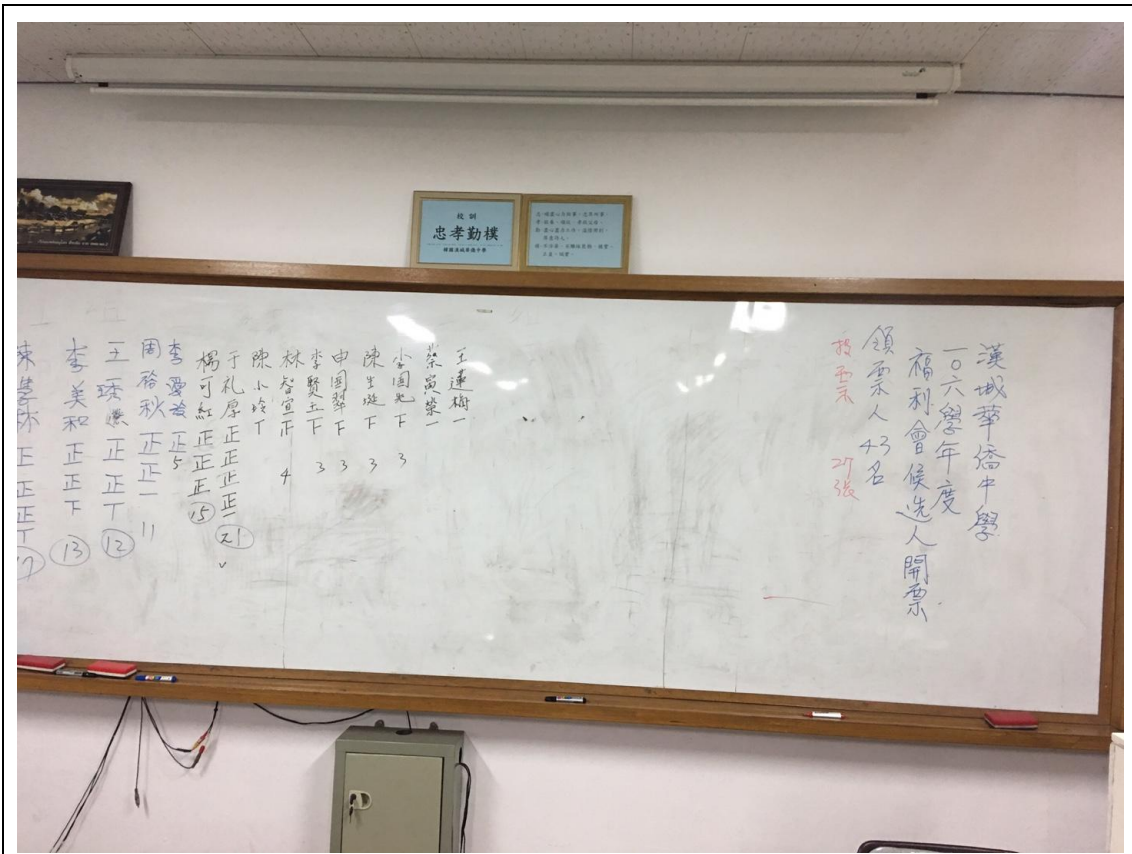 校訓
忠孝勤樸
韓國漢城華僑中學
漢城華僑中學
一〇六學年度
福利會候选人開票
領票人 43名
投票 27張
王蓮樹 一
葉冀榮 一
李國光 下 3
陳生璇 下 3
申國翠 下 3
李賢玉 下 3
林智宜 正 4
陳小玲 丅
于礼厚 正正正正一 21
楊可紅 正正正 15
李愛 正 5
周裕秋 正正一 11
王 正正丅 12
李美和 正正下 13
陳慧 正正正丅